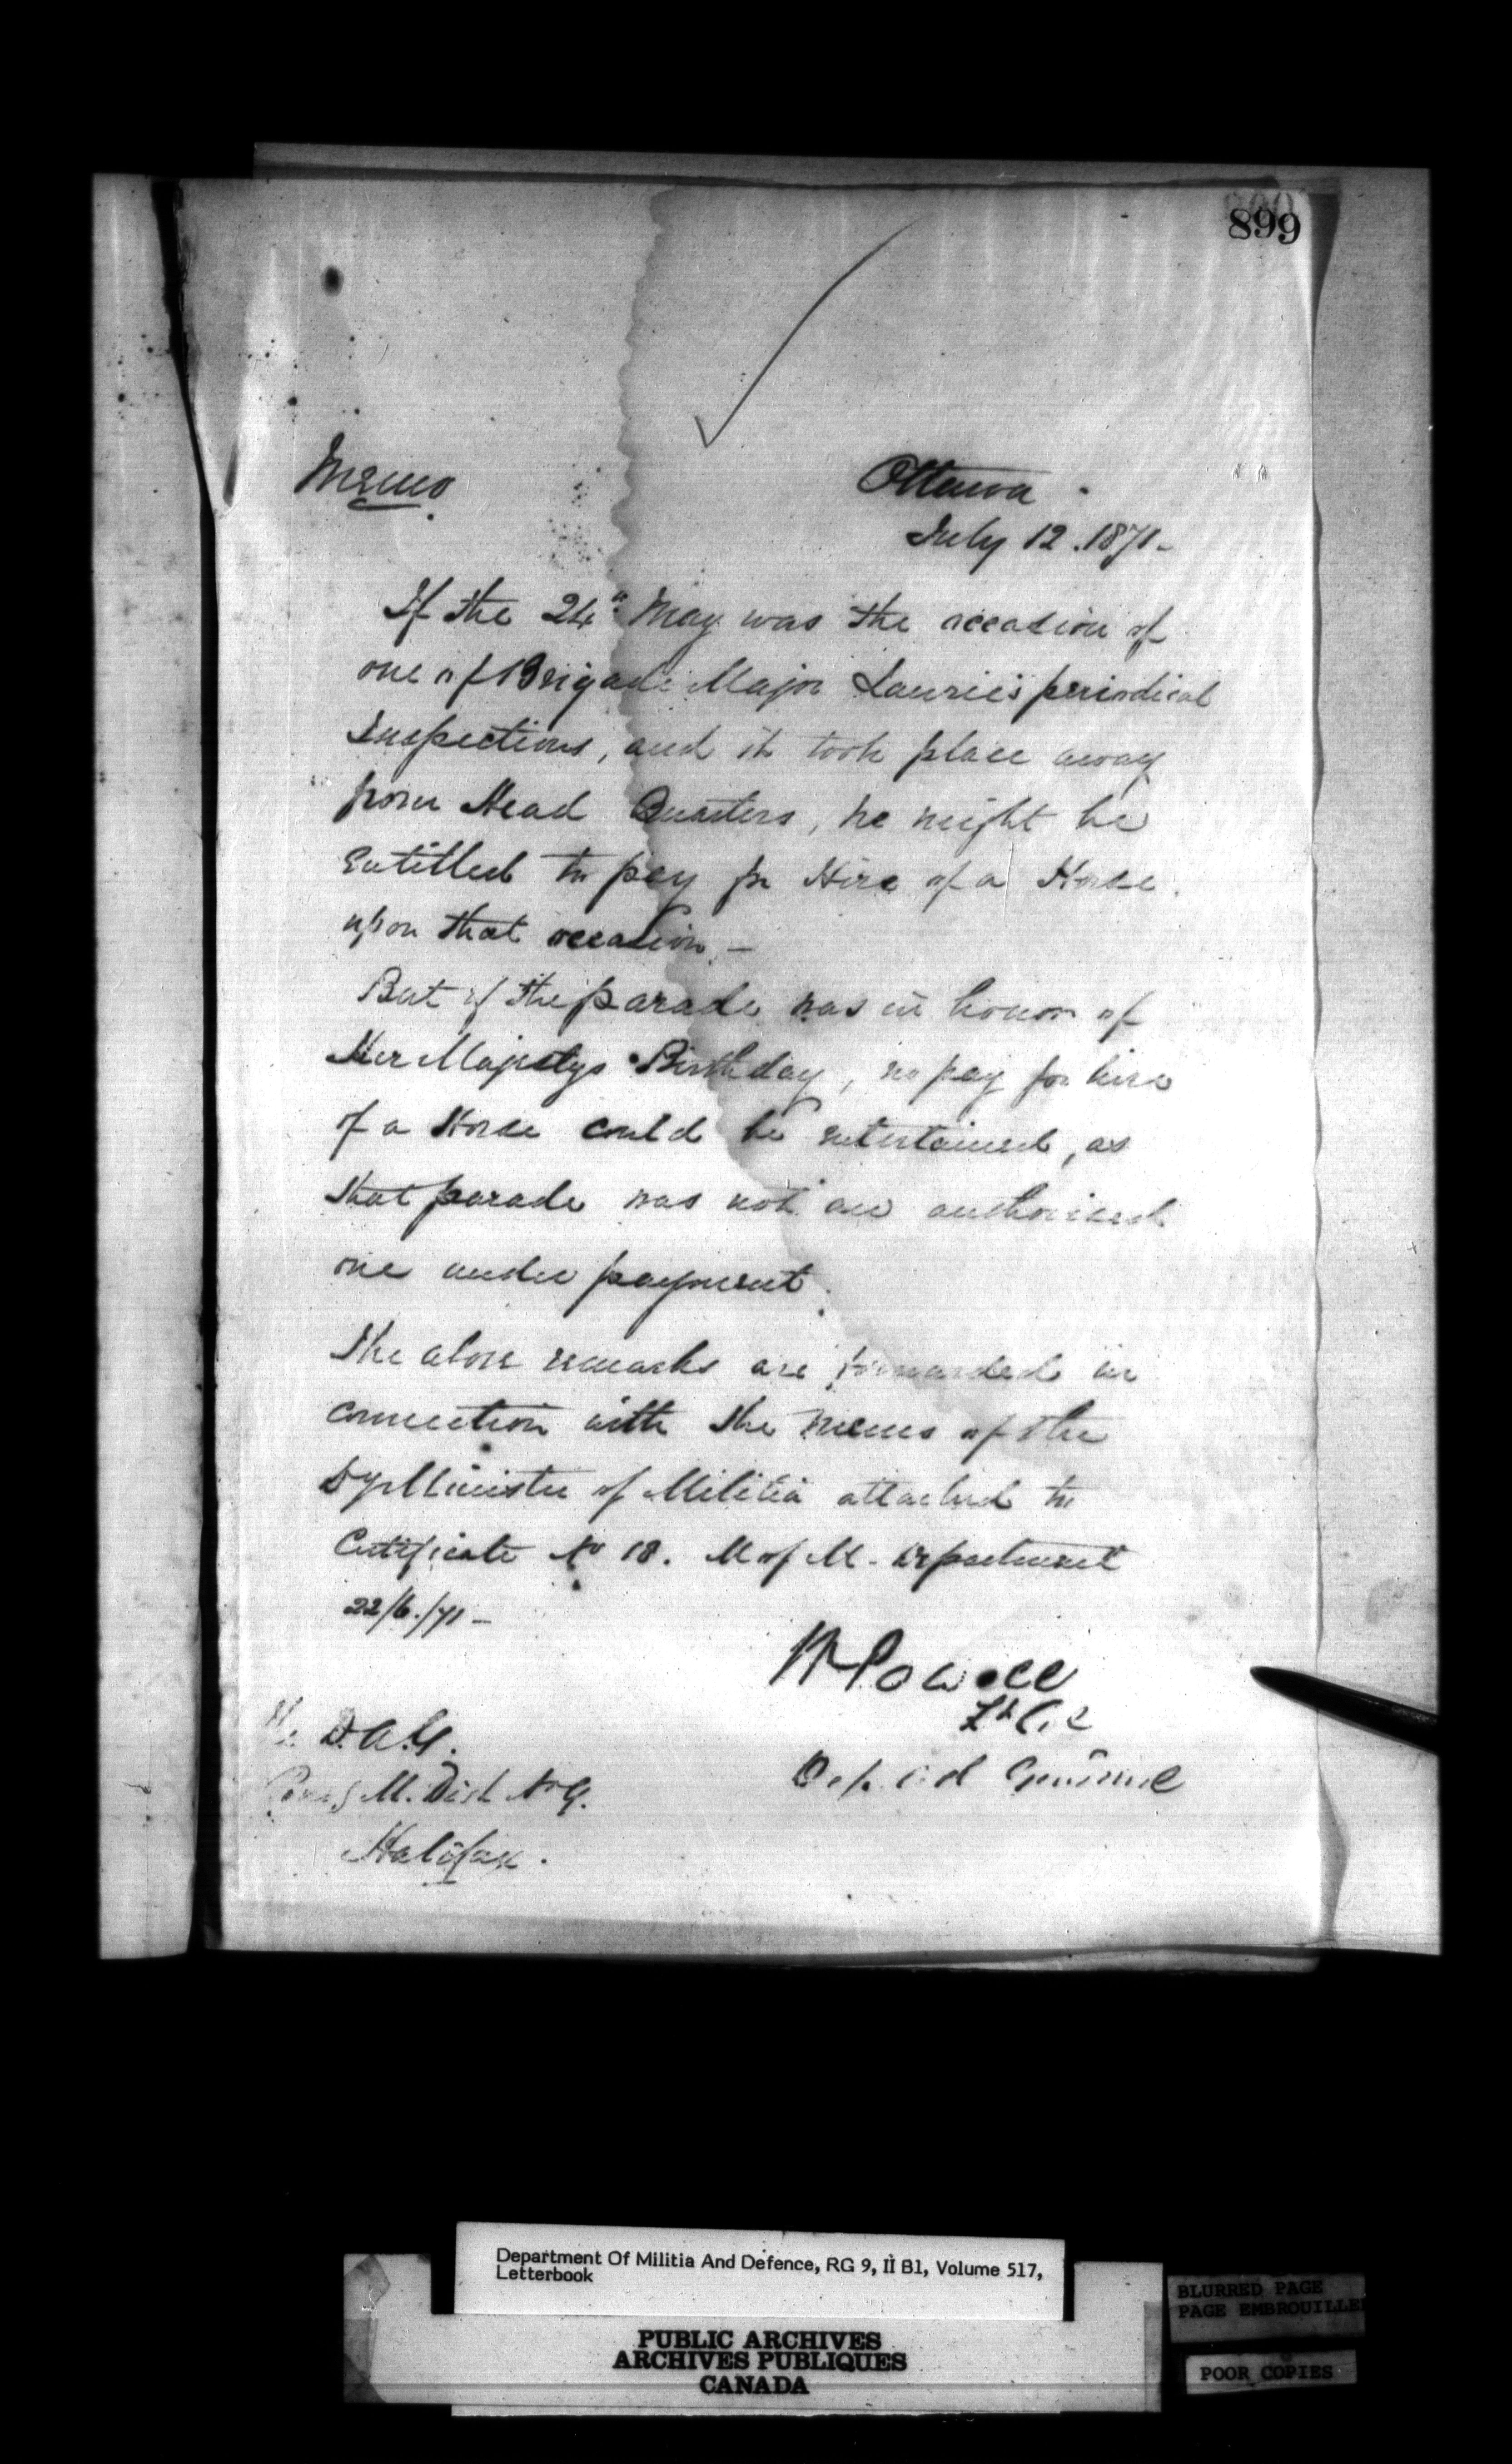 899
Memo
Ottawa
July 12. 1871-
If the 24th May was the occasion of
one of Brigade Major Laurie's periodical
Inspections, and it took place away
from Head Quarters, he might be
entitled to pay for Hire of a Horse
upon that occasion. -
But if the parade was in honor of
Her Majestys Birthday, no pay for hire
of a Horse could be entertained, as
that parade was not an authorised
one under payment.
The above remarks are forwarded in
connection with the memo of the
Dy Minister of Militia attached to
Certificate No 18. M of M. Department
22/6./71 -
W Powell
Lt Col
Dep. Ad General
The D.A.G.
Comg M. Dist No 9.
Halifax.
Department Of Militia And Defence, RG 9, II B1, Volume 517,
Letterbook
PUBLIC ARCHIVES
ARCHIVES PUBLIQUES
CANADA
BLURRED PAGE
PAGE EMBROUILLEE
POOR COPIES